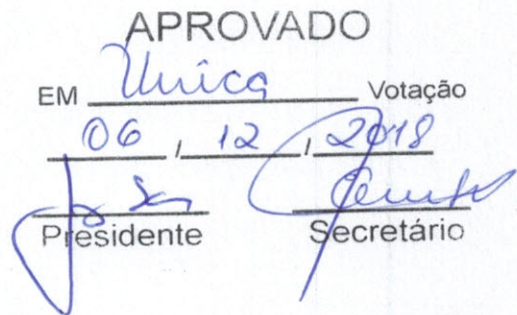 APROVADO
EM Única Votação
06 / 12 / 2018
Presidente Secretário